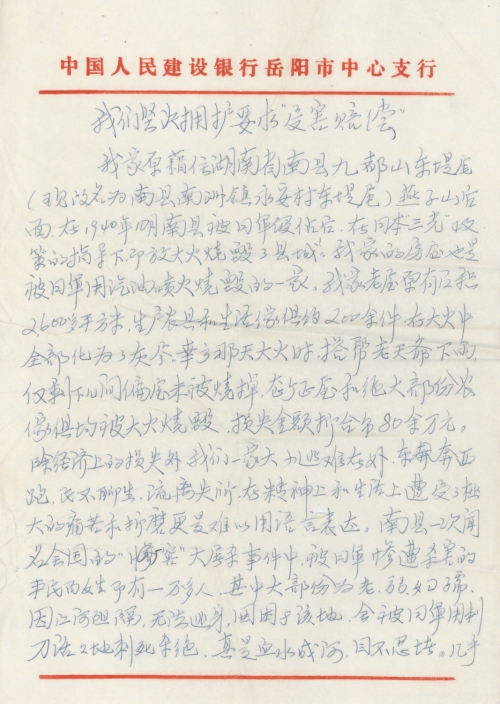 中国人民建设银行岳阳市中心支行
我们坚决拥护要求"受害赔偿"
我家原籍住湖南省南县九都山东堤尾
(现改名为南县南洲镇永安村东堤尾)燕子山后
面,在1940年10月南县被日军侵佔后,在日本"三光"政
策的指导下,即放大火烧毁了县城,我家的房屋也是
被日军用汽油喷火烧毁的一家,我家老屋原有面积
2,600多平方米,生产农具和生活傢俱约200余件在大火中
全部化为了灰尽,幸亏那天大火时,搭帮老天爷下雨
仅剩下几间偏屋未被烧掉,整个正屋和绝大部份农
傢俱均被大火烧毁,损失金额折合币80余万元。
除经济上的损失外,我们一家大小逃难在外,东奔西
跑,民不聊生,流离失所,在精神上和生活上遭受了极
大的痛苦和折磨更是难以用语言表达。南县一次闻
名全国的"厂窖"大屠杀事件中,被日军惨遭杀害的
平民百姓即有一万多人,其中大部份为老、弱、妇孺,
因江河阻隔,无法逃身,围困于该地,全被日军用刺
刀活活地刺死杀绝,真是血水成河,目不忍堵。几乎